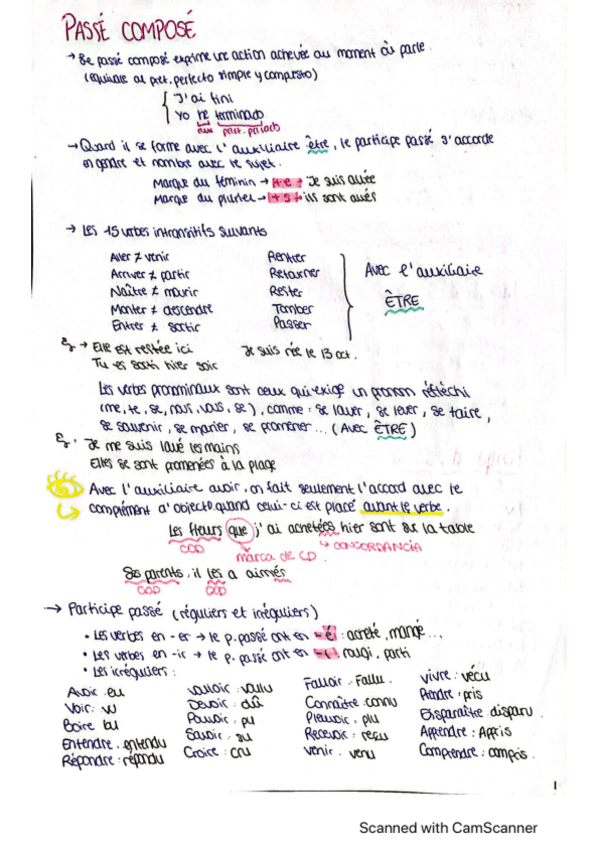 PASSÉ COMPOSÉ
→ Le passé composé exprime une action achevée au moment où parle.
(equivale al pret. perfecto simple y compuesto)
J'ai fini
Yo he terminado
aux part. pasado
→ Quand il se forme avec l'auxiliaire être, le participe passé s'accorde
en genre et nombre avec le sujet.
Marque du féminin → +e → Je suis allée
Marque du pluriel → +s → ils sont allés
→ Les 15 verbes intransitifs suivants
Aller ≠ venir Rentrer
Arriver ≠ partir Retourner
Naître ≠ mourir Rester
Monter ≠ descendre Tomber
Entrer ≠ sortir Passer
Avec l'auxiliaire
ÊTRE
Ej → Elle est restée ici Je suis née le 13 oct.
Tu es sorti hier soir
Les verbes pronominaux sont ceux qui exige un pronon réfléchi
(me, te, se, nous, vous, se), comme: se laver, se lever, se taire,
se souvenir, se marier, se promener... (Avec ÊTRE)
Ej. Je me suis lavé les mains
Elles se sont promenées à la plage
Avec l'auxiliaire avoir, on fait seulement l'accord avec le
complément d'objecto quand celui-ci est placé avant le verbe.
Les fleurs que j'ai achetées hier sont sur la table
COD marca de CD. → CONCORDANCIA
Ses parents, il les a aimés
COD COD
→ Participe passé (réguliers et irréguliers)
• Les verbes en -er → le p. passé ont en -é: acheté, mangé...
• Les verbes en -ir → le p. passé ont en -i: rougi, parti
• Les irréguliers:
Avoir: eu Valoir: valu Falloir: Fallu. Vivre: vécu
Voir: vu Devoir: dû Connaître: connu Prendre: pris
Boire bu Pouvoir: pu Pleuvoir: plu Disparaître: disparu
Entendre: entendu Savoir: su Recevoir: reçu Apprendre: Appris
Répondre: répondu Croire: cru Venir: venu Comprendre: compris.
1
Scanned with CamScanner